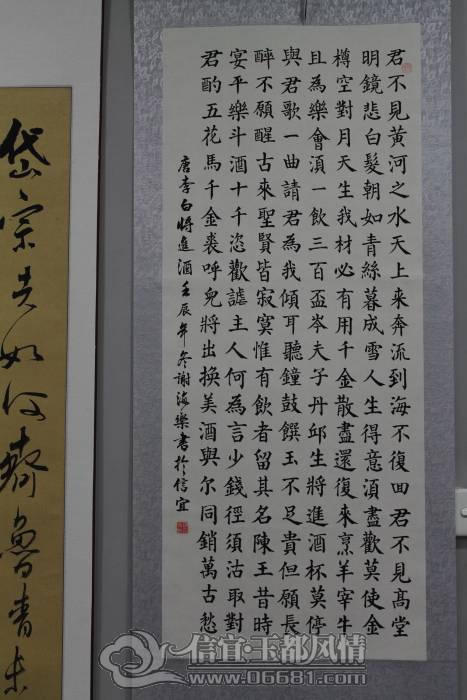 君不見黃河之水天上來奔流到海不復回君不見高堂
明鏡悲白髮朝如青絲暮成雪人生得意湏盡歡莫使金
樽空對月天生我材必有用千金散盡還復來烹羊宰牛
且為樂會湏一飲三百盃岑夫子丹邱生將進酒杯莫停
與君歌一曲請君為我傾耳聽鐘鼓饌玉不足貴但願長
醉不願醒古來聖賢皆寂寞惟有飲者留其名陳王昔時
宴平樂斗酒十千恣歡謔主人何為言少錢徑須沽取對
君酌五花馬千金裘呼兒將出換美酒與尔同銷萬古愁
唐李白將進酒壬辰年冬謝海樂書於信宜
岱宗夫如何齊魯青未
信宜·玉都风情
www.06681.com